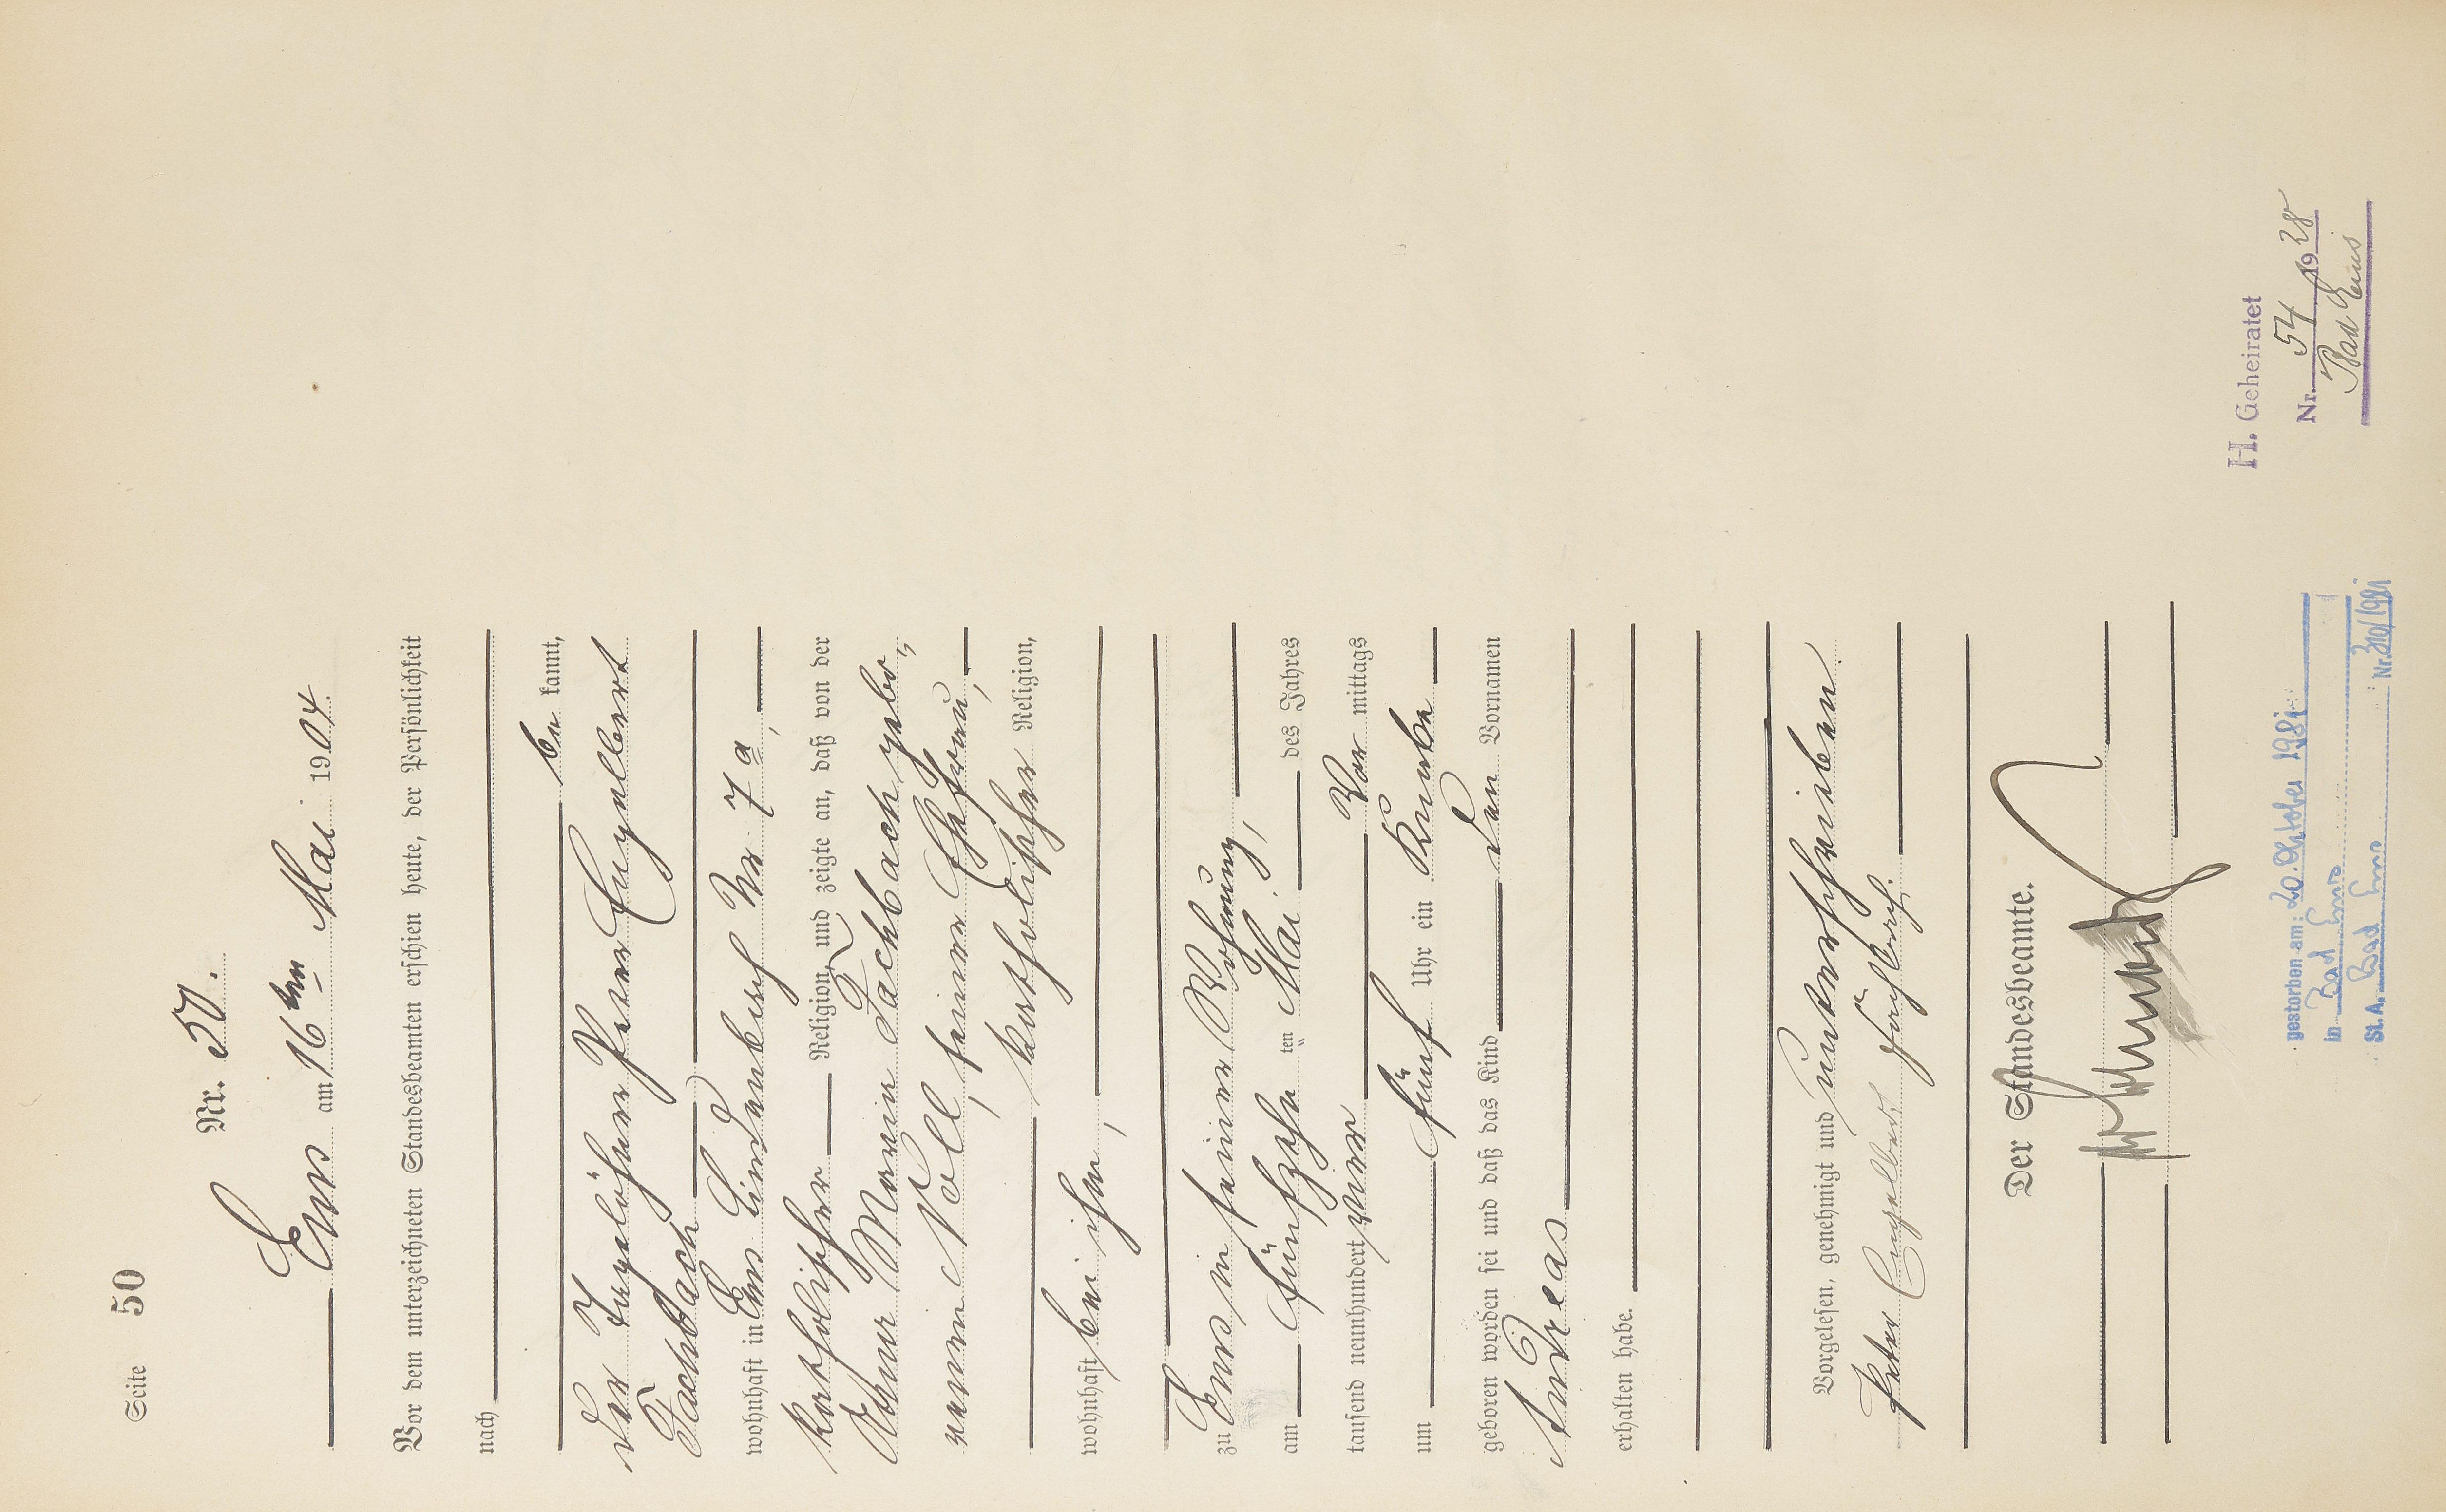 Seite 50
Nr. 50.
Ems am 16ten Mai 1904.
Vor dem unterzeichneten Standesbeamten erschien heute, der Persönlichkeit
nach
be kannt,
der Tagelöhner Peter Engelbert
Fachbach
wohnhaft in Ems Lindenbach Nr 7a,
katholischer Religion, und zeigte an, daß von der
Anna Maria Fachbach gebo-
renen Nöll, seiner Ehefrau,
katholischer Religion,
wohnhaft bei ihm,
zu Ems in seiner Wohnung,
am fünfzehn ten Mai des Jahres
tausend neunhundert vier Vor mittags
um fünf Uhr ein Knabe
geboren worden sei und daß das Kind den Vornamen
Andreas
erhalten habe.
Vorgelesen, genehmigt und unterschrieben
Peter Engelbert Fachbach.
Der Standesbeamte.
gestorben am: 20. Oktober 1981
in Bad Ems
St. A. Bad Ems Nr. 310/1981
H. Geheiratet
Nr. 54/1928
Bad Ems